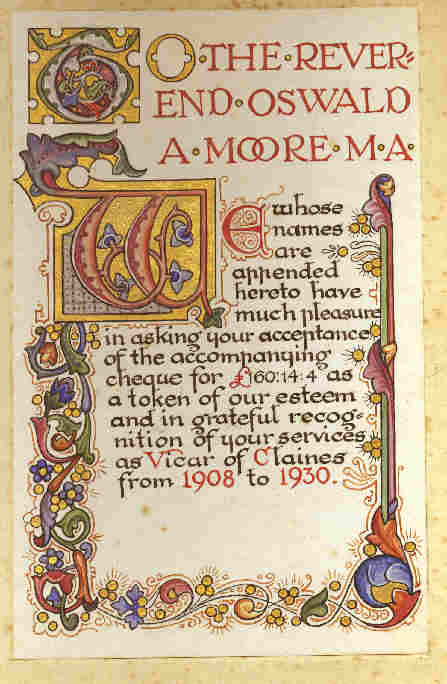 TO·THE·REVER-
END·OSWALD
A·MOORE·M·A·
WE whose
names
are
appended
hereto have
much pleasure
in asking your acceptance
of the accompanying
cheque for £160:14:4 as
a token of our esteem
and in grateful recog-
nition of your services
as Vicar of Claines
from 1908 to 1930.